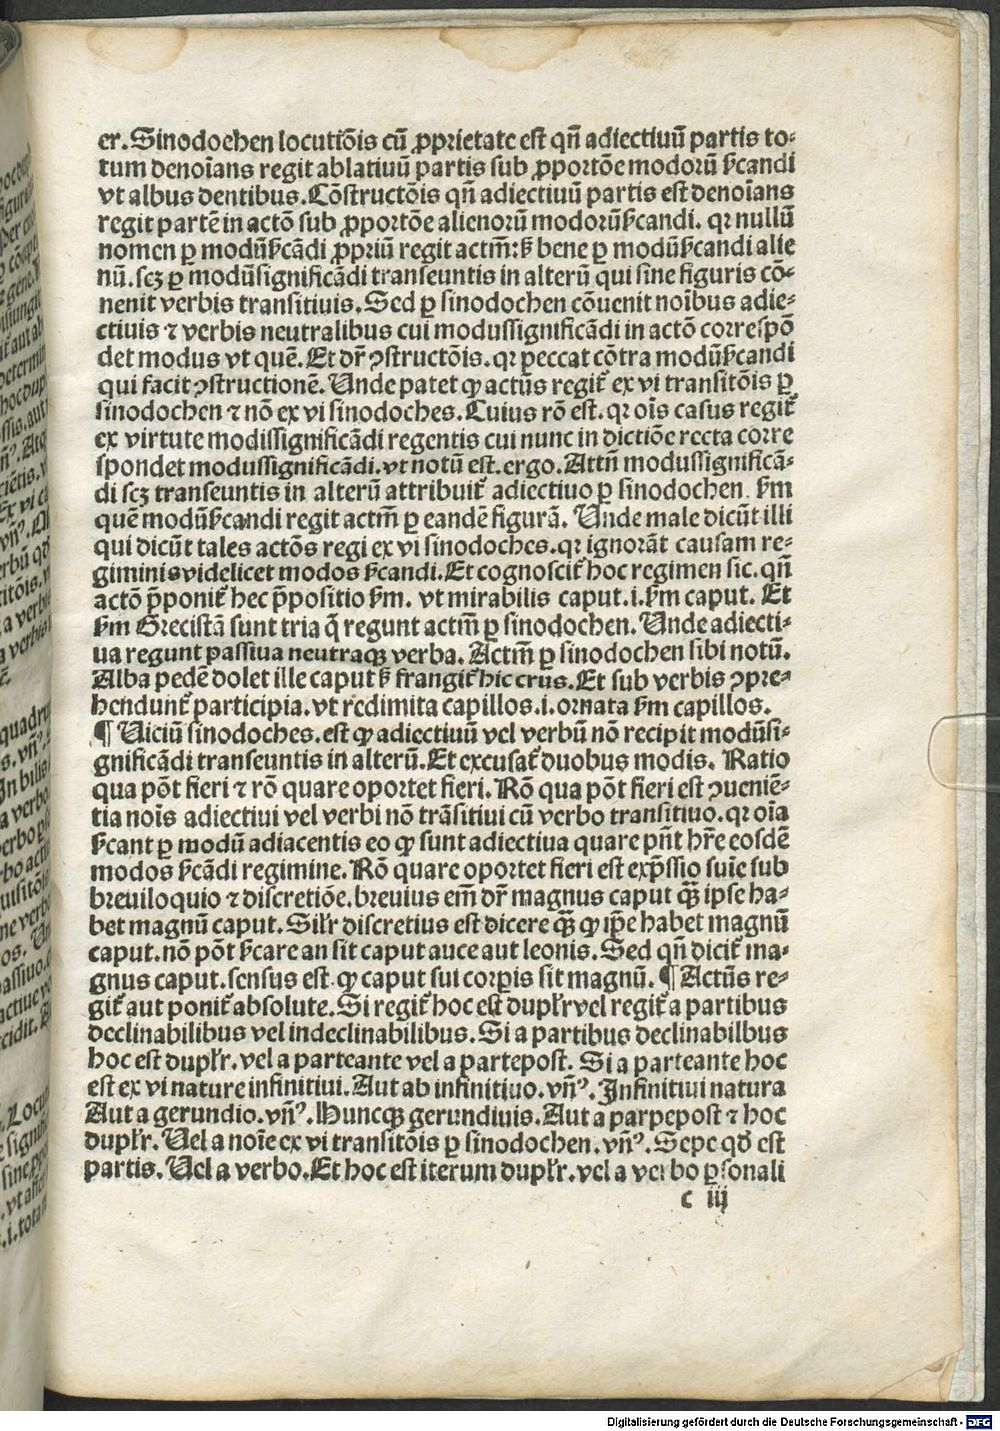 er. Sinodochen locutiõis cũ ꝓprietate est qñ adiectiuũ partis to-
tum denoĩans regit ablatiuũ partis sub ꝓportõe modorũ ẜcandi
vt albus dentibus. Cõstructõis qñ adiectiuũ partis est denoĩans
regit partẽ in actõ sub ꝓportõe alienorũ modorũẜcandi. qr nullũ
nomen ꝑ modũẜcãdi ꝓpriũ regit actm̃: ẜꝫ bene ꝑ modũẜcandi alie
nũ. scꝫ ꝑ modũsignificãdi transeuntis in alterũ qui sine figuris cõ-
nenit verbis transitiuis. Sed ꝑ sinodochen cõuenit noĩbus adie-
ctiuis ⁊ verbis neutralibus cui modussignificãdi in actõ correspõ
det modus vt quẽ. Et dr̃ ꝯstructõis. qr peccat cõtra modũẜcandi
qui facit ꝯstructionẽ. Unde patet ꝙ actũs regit᷑ ex vi transitõis ꝑ
sinodochen ⁊ nõ ex vi sinodoches. Cuius rõ est. qr oĩs casus regit᷑
ex virtute modissignificãdi regentis cui nunc in dictiõe recta corre
spondet modussignificãdi. vt notũ est. ergo. Attñ modussignificã-
di scꝫ transeuntis in alterũ attribuit᷑ adiectiuo ꝑ sinodochen. ẜm
quẽ modũẜcandi regit actm̃ ꝑ eandẽ figurã. Unde male dicũt illi
qui dicũt tales actõs regi ex vi sinodoches. qr ignorãt causam re-
giminis videlicet modos ẜcandi. Et cognoscit᷑ hoc regimen sic. qñ
actõ p̃ponit᷑ hec p̃positio ẜm. vt mirabilis caput. i. ẜm caput. Et
ẜm Grecistã sunt tria q̃ regunt actm̃ ꝑ sinodochen. Unde adiecti-
ua regunt passiua neutraqꝫ verba. Actm̃ ꝑ sinodochen sibi notũ.
Alba pedẽ dolet ille caput ẜꝫ frangit᷑ hic crus. Et sub verbis ꝯpre-
hendunt᷑ participia. vt redimita capillos. i. ornata ẜm capillos.
¶ Uiciũ sinodoches. est ꝙ adiectiuũ vel verbũ nõ recipit modũsi-
gnificãdi transeuntis in alterũ. Et excusat᷑ duobus modis. Ratio
qua põt fieri ⁊ rõ quare oportet fieri. Rõ qua põt fieri est ꝯueniẽ-
tia noĩs adiectiui vel verbi nõ trãsitiui cũ verbo transitiuo. qr oĩa
ẜcant ꝑ modũ adiacentis eo ꝙ sunt adiectiua quare pñt hr̃e eosdẽ
modos ẜcãdi regimine. Rõ quare oportet fieri est exp̃ssio suĩe sub
breuiloquio ⁊ discretiõe. breuius em̃ dr̃ magnus caput qꝫ̃ ipse ha-
bet magnũ caput. Silr̃ discretius est dicere qꝫ̃ ꝙ ip̃e habet magnũ
caput. nõ põt ẜcare an sit caput auce aut leonis. Sed qñ dicit᷑ ma-
gnus caput. sensus est. ꝙ caput sui corpis sit magnũ. ¶ Actũs re-
git᷑ aut ponit᷑ absolute. Si regit᷑ hoc est duplr̃ vel regit᷑ a partibus
declinabilibus vel indeclinabilibus. Si a partibus declinabilbus
hoc est duplr̃. vel a parteante vel a partepost. Si a parteante hoc
est ex vi nature infinitiui. Aut ab infinitiuo. vñꝰ. Infinitiui natura
Aut a gerundio. vñꝰ. Huncqꝫ gerundiuis. Aut a parpepost ⁊ hoc
duplr̃. Uel a noĩe ex vi transitõis ꝑ sinodochen. vñꝰ. Sepe qd̃ est
partis. Uel a verbo. Et hoc est iterum duplr̃. vel a verbo ꝑsonali
c iij
Digitalisierung gefördert durch die Deutsche Forschungsgemeinschaft - DFG